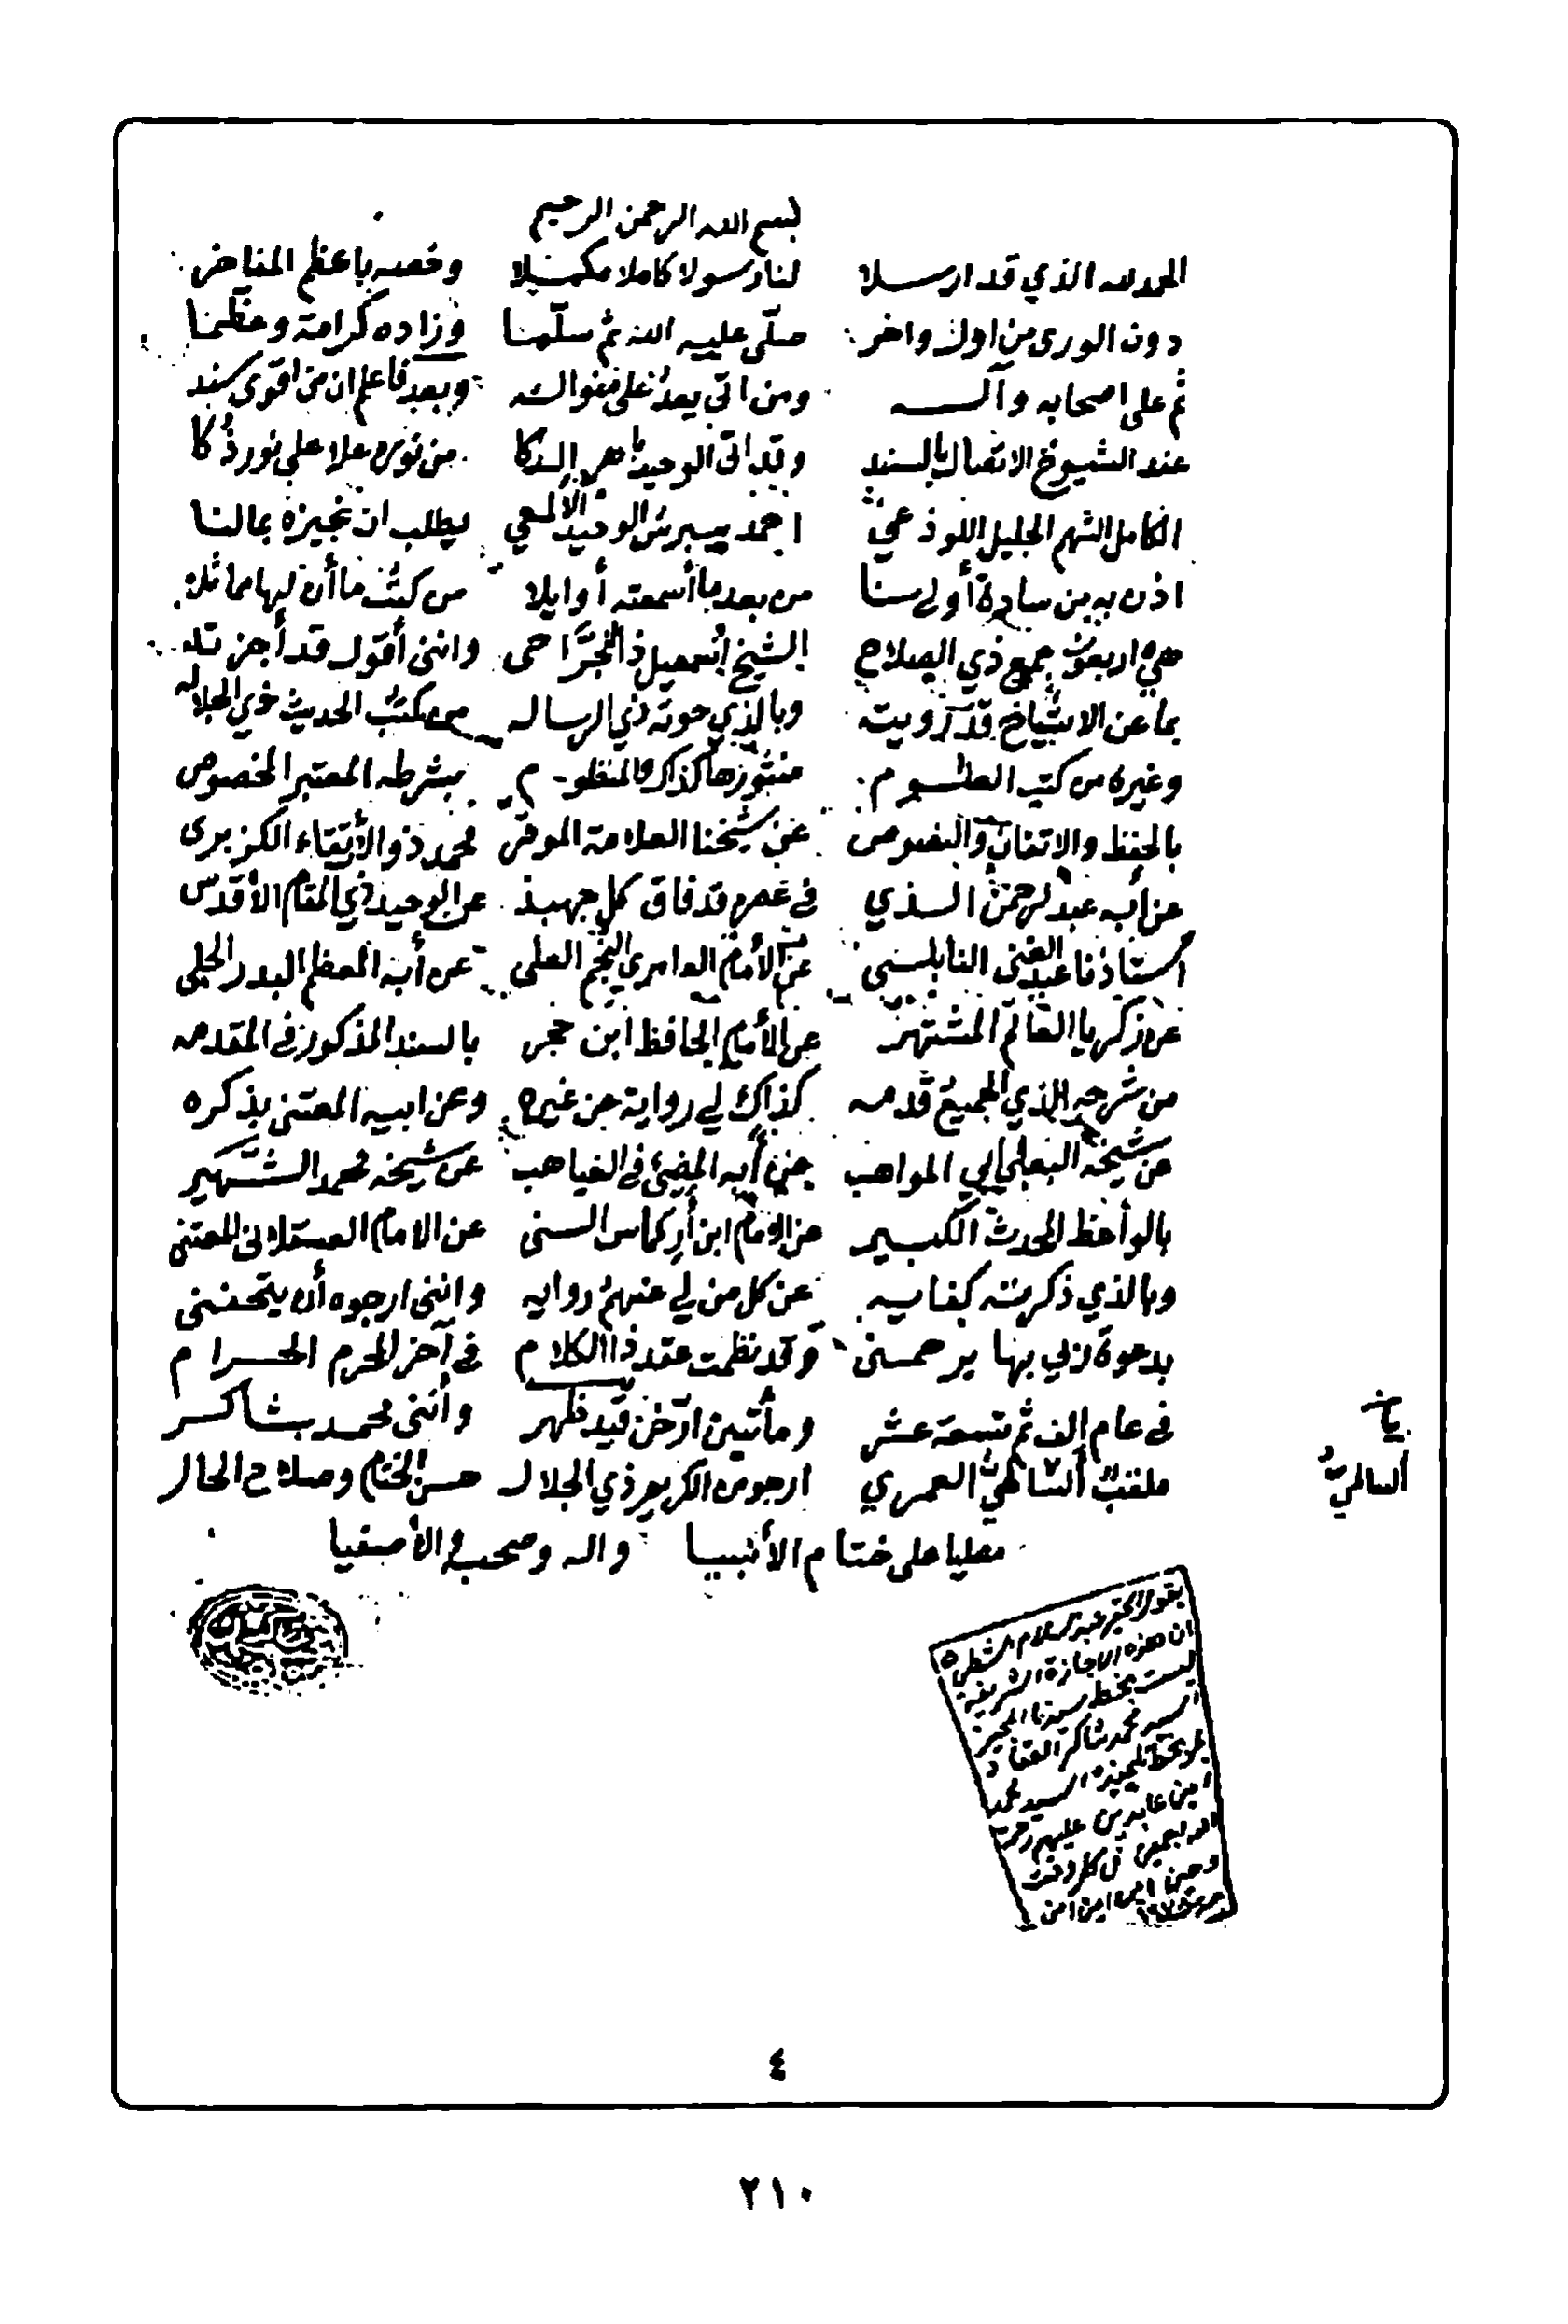 بسم الله الرحمن الرحيم
الحمد لله الذي قد ارسلا لنا رسولا كاملا مكملا وخصه باعظم المفاخر
دون الورى من اول واخر صلى عليه الله ثم سلما وزاده كرامة وعظما
ثم على اصحابه وآله ومن اتى يعد على منواله وبعد فاعلم ان من اقوى سند
عند الشيوخ الاتصال بالسند وقد اتى الوحيد باهي الذكا من نوره علا على نور ذكا
الكامل الشهم الجليل اللوذعي احمد بيبرس الوحيد الألمعي يطلب ان نجيزه بما لنا
اذن به من سادة أولي سنا من بعد ما أسمعته أوايلا من كتب ما أن لها مماثلا
هي اربعون جمع ذي الصلاح الشيخ إسمعيل ذا الجراحى وانني أقول قد أجزته
بما عن الاشياخ قد رويته وبالذي حوته ذي الرساله من كتب الحديث ذي الجلاله
وغيره من كتب العلوم منثورها كذاك والمنظوم بشرطه المعتبر المخصوص
بالحفظ والاتقان والنصوص عن شيخنا العلامة الموقر محمد ذو الأتقاء الكزبرى
عن أبه عبد الرحمن الذي في عصره قد فاق كل جهبذ عن الوحيد ذي المقام الأقدس
أستاذنا عبد الغنى النابلسي عن الأمام العامري النجم العلى عن أبه المعظم البدر الجلى
عن زكريا العالم المشتهر عن الأمام الحافظ ابن حجر بالسند المذكور في المقدمه
من شرحه الذي الجميع قدمه كذاك لي رواية عن غيره وعن ابيه المعتنى بذكره
عن شيخه البعلي ابي المواهب عن أبه المضئ في الغياهب عن شيخه محمد الشهير
بالواعظ المحدث الكبير عن الامام ابن أركماس السنى عن الامام العسقلاني المعتنى
وبالذي ذكرته كفايه عن كل من لي عنهم روايه وانني ارجوه أن يتحفنى
بدعوة ربي بها يرحمنى وقد نظمت عقد ذا الكلام في آخر المحرم الحرام
في عام الف ثم تسعة عشر ومأتين ارخن قيد ظهر وأنني محمد بشاكر
ملقب السالمي العمري ارجو من الكريم ذي الجلال حسن الختام وصلاح الحال
يا
السالمي
مصليا على ختام الأنبيا واله وصحبه والأصفيا
يقول الحقير عبد السلام الشطي
ان هذه الاجازة الشريفة
ليست بخط سيدنا المجيز
السيد محمد شاكر العقاد
بل بخط تلميذه السيد محمد
امين عابدين عليهم رحمة
الله اجمعين في كل وقت
وحين امين امين
٤
٢١٠